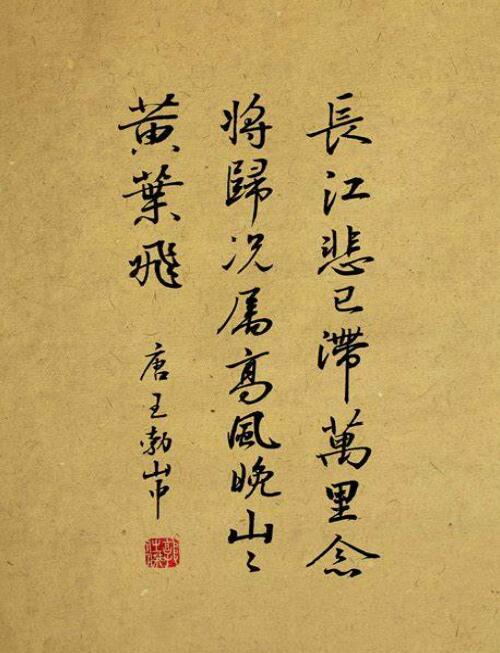 長江悲已滯萬里念
將歸况属高風晚山〻
黄葉飛
唐王勃山中